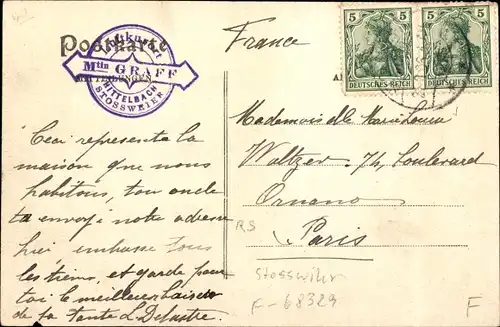 Postkarte
Luftkurort
Mttn GRAFF
MITTEILUNGEN
MITTELBACH
STOSSWEIER
France
5 5
DEUTSCHES REICH DEUTSCHES REICH
Ceci représente la
maison que nous
habitons, ton oncle
t'a envoyé notre adresse
hier embrasse tous
les tiens, et garde pour
toi le meilleur baiser
de ta Tante L Delastre.
Mademoiselle Marie Louise
Waltzer 74, boulevard
Ornano
Paris
R.S
Stosswihr
F-68329
F